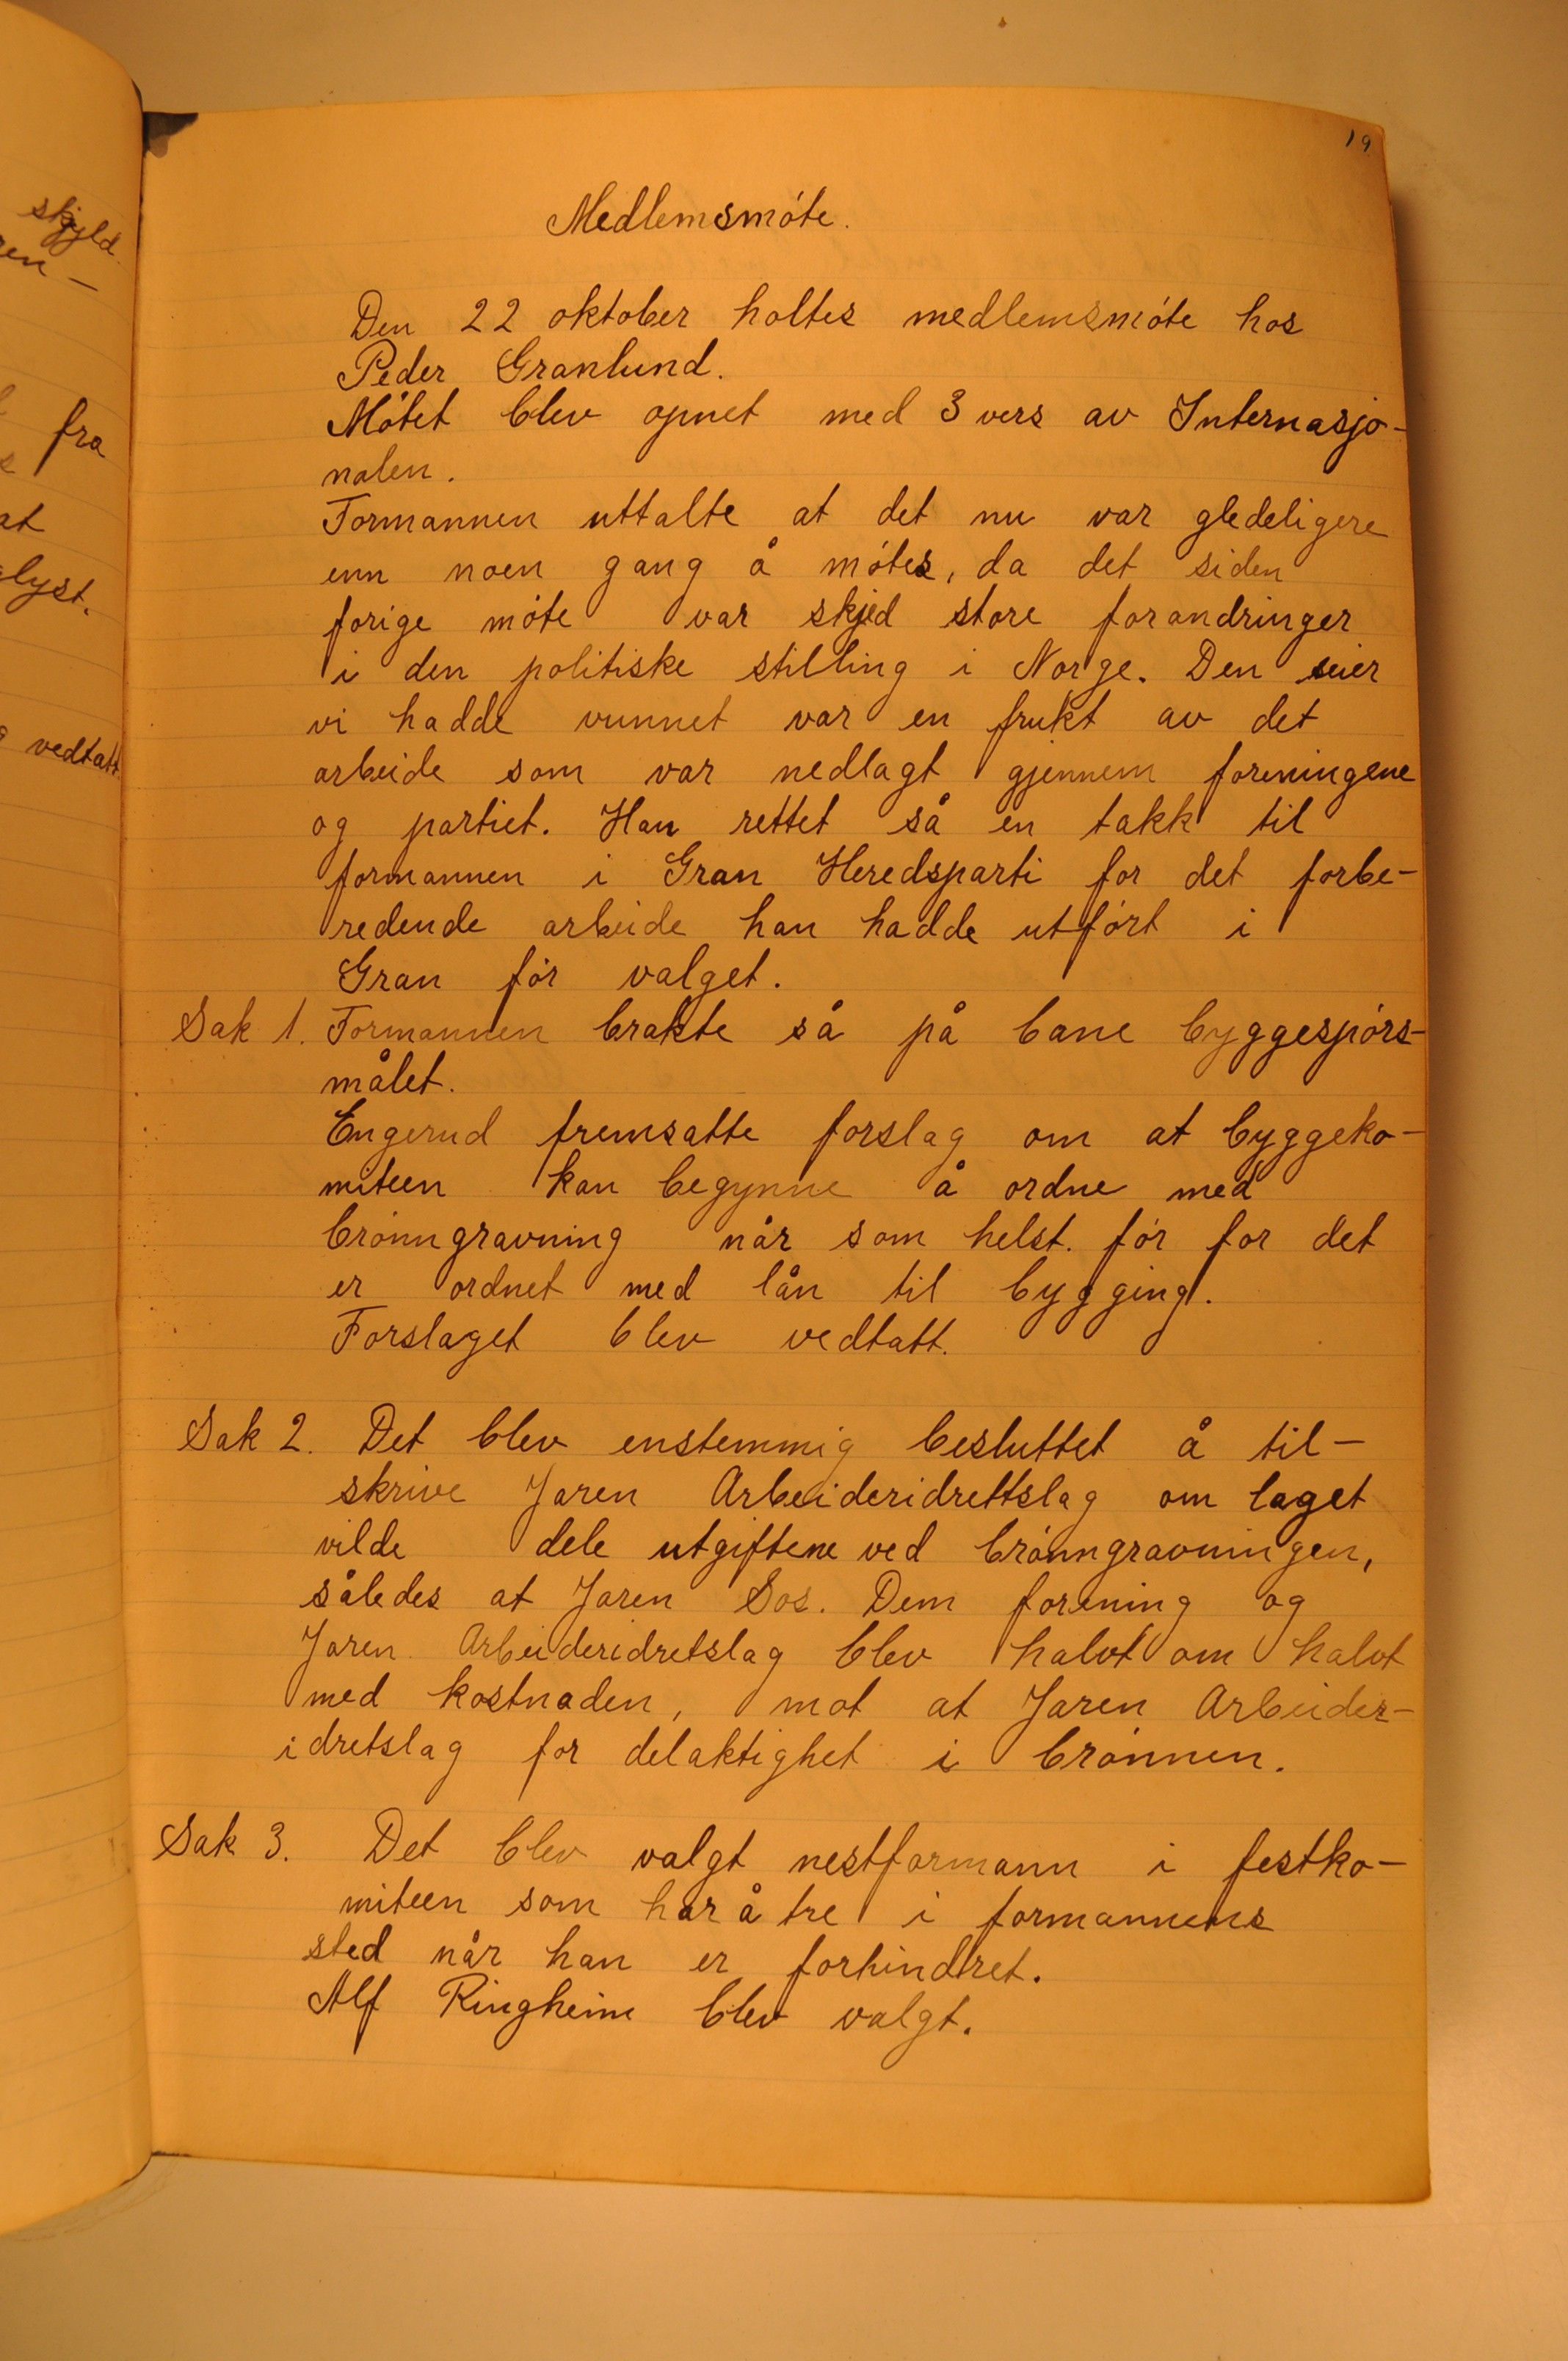 skyld.
ren -
fra
at
lyst.
vedtatt.
19
Medlemsmóte.
Den 22 oktober holtes medlemsmóte hos
Peder Granlund.
Mótet blev opnet med 3 vers av Internasjo-
nalen.
Formannen uttalte at det nu var gledeligere
enn noen gang å mótes, da det siden
forige móte var skjed store forandringer
i den politiske stilling i Norge. Den seier
vi hadde vunnet var en frukt av det
arbeide som var nedlagt gjennem foreningene
og partiet. Han rettet så en takk til
formannen i Gran Heredsparti for det forbe-
redende arbeide han hadde utfórt i
Gran fór valget.
Sak 1. Formannen brakte så på bane byggespórs-
målet.
Engerud fremsatte forslag om at byggeko-
miteen kan begynne å ordne med
brónngravning når som helst. fór for det
er ordnet med lån til bygging.
Forslaget blev vedtatt.
Sak 2. Det blev enstemmig besluttet å til-
skrive Jaren Arbeideridrettslag om laget
vilde dele utgiftene ved brónngravningen,
således at Jaren Sos. Dem forening og
Jaren Arbeideridretslag blev halvt om halvt
med kostnaden, mot at Jaren Arbeider-
idretslag for delaktighet i brónnen.
Sak 3. Det blev valgt nestformann i festko-
miteen som har å tre i formannens
sted når han er forhindret.
Alf Ringheim blev valgt.